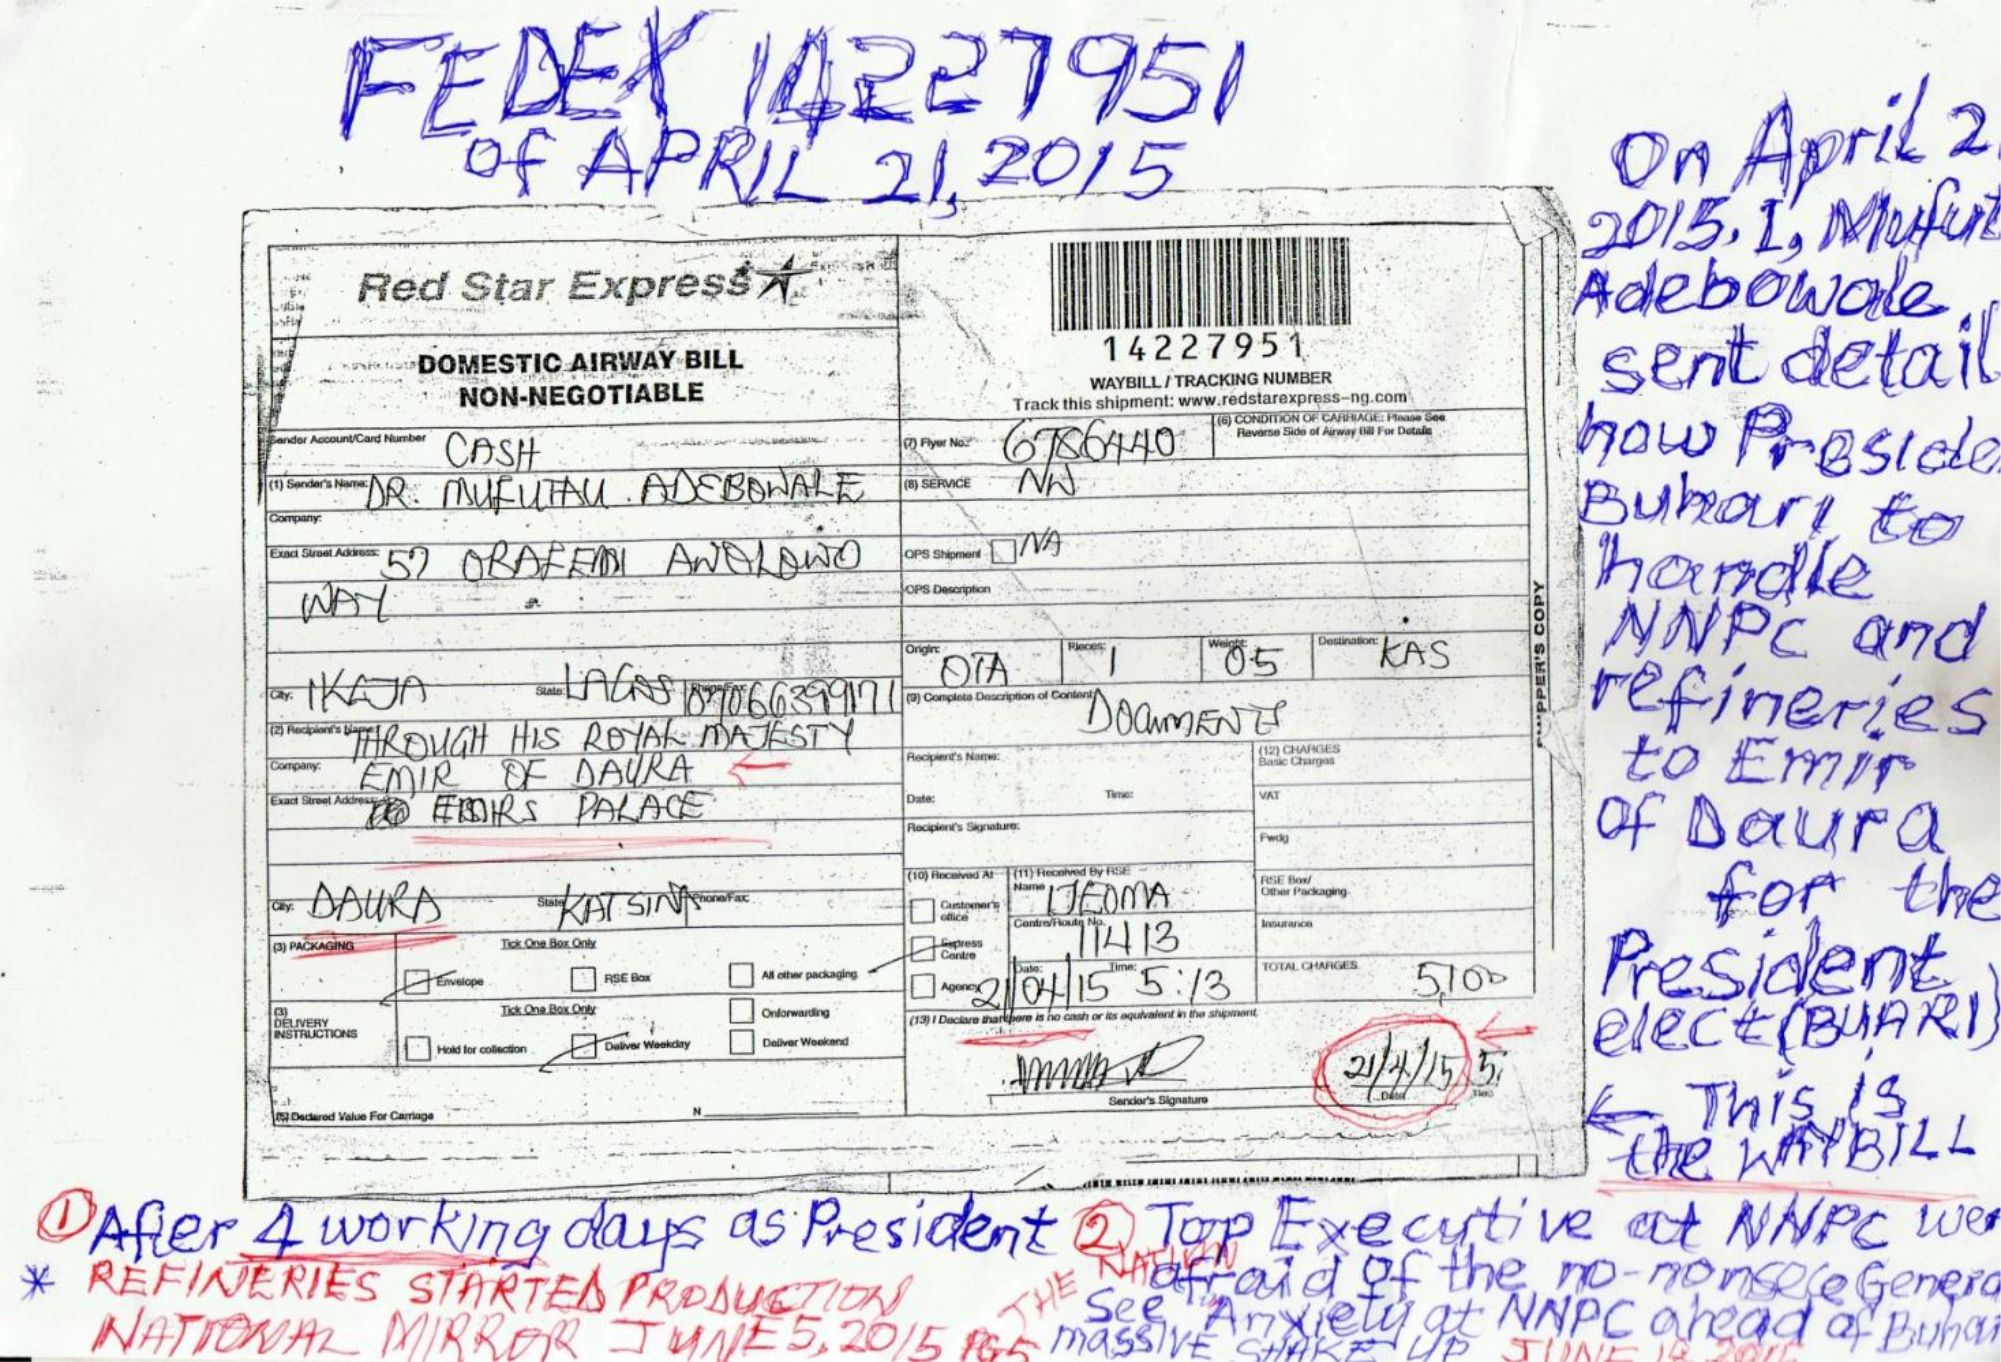 FEDEX 14227951
of APRIL 21, 2015
Red Star Express
DOMESTIC AIRWAY BILL
NON-NEGOTIABLE
14227951
WAYBILL / TRACKING NUMBER
Track this shipment: www.redstarexpress-ng.com
Sender Account/Card Number CASH
(7) Flyer No.: 6786440
(6) CONDITION OF CARRIAGE: Please See
Reverse Side of Airway Bill For Details
(1) Sender's Name: DR. MUFUTAU ADEBOWALE
(8) SERVICE NW
Company:
Exact Street Address: 57 OBAFEMI AWOLOWO
WAY
OPS Shipment NA
OPS Description
Origin: OTA
Pieces: 1
Weight: 05
Destination: KAS
City: IKEJA State: LAGOS Phone/Fax:
(9) Complete Description of Content DOCUMENTS
(2) Recipient's Name: THROUGH HIS ROYAL MAJESTY
Company: EMIR OF DAURA
Exact Street Address: EMIRS PALACE
City: DAURA State: KATSINA Phone/Fax:
Recipient's Name:
Date: Time:
Recipient's Signature:
(12) CHARGES
Basic Charges
VAT
Fwdg
RSE Box/
Other Packaging
Insurance
TOTAL CHARGES 5,100
(10) Received At
Customer's
office
Express
Centre
Agency
(11) Received By RSE
Name IJEOMA
Centre/Route No.
11413
Date: Time:
21/04/15 5:13
(3) PACKAGING Tick One Box Only
Envelope RSE Box All other packaging
(3)
DELIVERY
INSTRUCTIONS
Tick One Box Only Onforwarding
Hold for collection Deliver Weekday Deliver Weekend
(5) Declared Value For Carriage N
(13) I Declare that there is no cash or its equivalent in the shipment
21/4/15 5:
Sender's Signature Date Time
SHIPPER'S COPY
On April 2
2015. I, Mufut
Adebowale
sent detail
how Preside
Buhari to
handle
NNPC and
refineries
to Emir
of Daura
for the
President
elect (BUARI)
← This is
the WAYBILL
① After 4 working days as President
* REFINERIES STARTED PRODUCTION
NATIONAL MIRROR JUNE 5, 2015 PG5
② Top Executive at NNPC wer
afraid of the no-nonsece Genera
THE NATION
See "Anxiety at NNPC ahead of Buhari
massive SHAKE UP JUNE